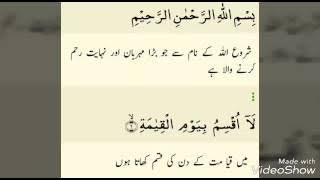 بِسْمِ اللهِ الرَّحْمٰنِ الرَّحِيْمِ
شروع الله کے نام سے جو بڑا مہربان اور نہایت رحم
کرنے والا ہے
لَآ اُقْسِمُ بِيَوْمِ الْقِيٰمَةِ ۙ﴿۱﴾
میں قیامت کے دن کی قسم کھاتا ہوں
Made with
VideoShow